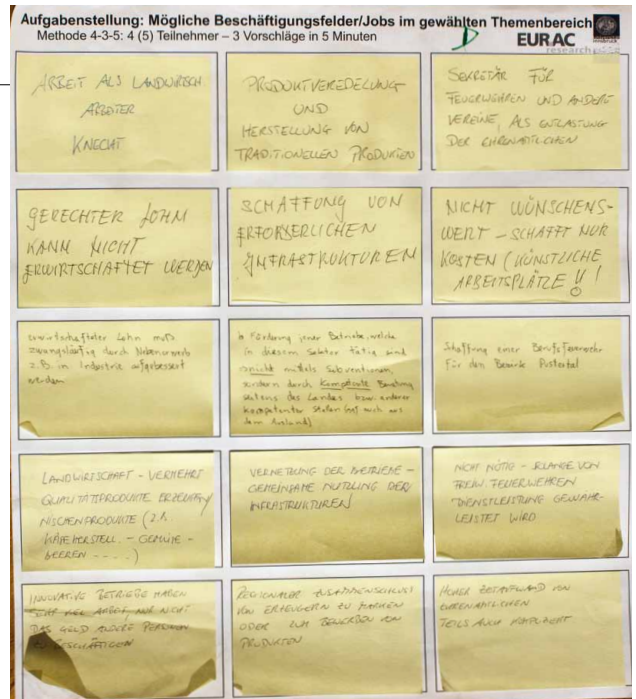 Aufgabenstellung: Mögliche Beschäftigungsfelder/Jobs im gewählten Themenbereich
Methode 4-3-5: 4 (5) Teilnehmer – 3 Vorschläge in 5 Minuten
D
EURAC
research
ARBEIT ALS LANDWIRSCH.
ARBEITER
KNECHT
PRODUKTVEREDELUNG
UND
HERSTELLUNG VON
TRADITIONELLEN PRODUKTEN
SEKRETÄR FÜR
FEUERWEHREN UND ANDERE
VEREINE, ALS ENTLASTUNG
DER EHRENAMTLICHEN
GERECHTER LOHN
KANN NICHT
ERWIRTSCHAFTET WERDEN
SCHAFFUNG VON
ERFORDERLICHEN
INFRASTRUKTUREN
NICHT WÜNSCHENS-
WERT – SCHAFFT NUR
KOSTEN (KÜNSTLICHE
ARBEITSPLÄTZE !!
erwirtschafteter Lohn muß
zwangsläufig durch Nebenerwerb
z.B. in Industrie aufgebessert
werden
Förderung jener Betriebe, welche
in diesem Sektor tätig sind
nicht mittels Subventionen,
sondern durch kompetente Beratung
seitens des Landes bzw. anderer
kompetenter Stellen auch aus
dem Ausland)
Schaffung einer Berufsfeuerwehr
für den Bezirk Pustertal
LANDWIRTSCHAFT – VERMEHRT
QUALITÄTSPRODUKTE ERZEUGEN/
NISCHENPRODUKTE (z.B.
KÄSEHERSTELL. – GEMÜSE –
BEEREN - - - - .)
VERNETZUNG DER BETRIEBE –
GEMEINSAME NUTZUNG DER
INFRASTRUKTUREN
NICHT NÖTIG – SOLANGE VON
FREIW. FEUERWEHREN
DIENSTLEISTUNG GEWÄHR-
LEISTET WIRD
INNOVATIVE BETRIEBE HABEN
SEHR VIEL ARBEIT NUR NICHT
DAS GELD ANDERE PERSONEN
ZU BESCHÄFTIGEN
REGIONALER ZUSAMMENSCHLUSS
VON ERZEUGERN ZU MARKEN
ODER ZUM BEWERBEN VON
PRODUKTEN
HOHER ZEITAUFWAND VON
EHRENAMTLICHEN
TEILS AUCH